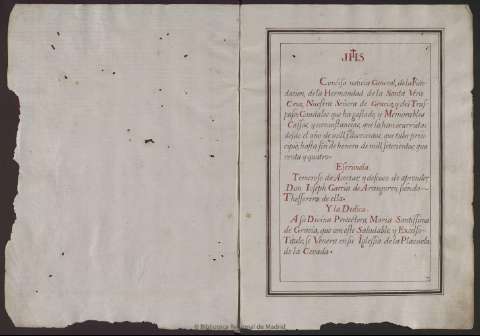 JHS
Concisa noticia General, de la Fun-
dacion, de la Hermandad de la Santa Vera
Cruz, Nuestra Señora de Gracia, y del Tras-
paso; Caudales que ha gastado, y Memorables
Cassos, y circunstancias, que la han ocurrido;
desde el año de mill,
principio, hasta fin de henero de mill, setecientos, qua-
renta y quatro.
Escriviala.
Temeroso de Acertar, y deseoso de aprender,
Don Joseph Garcia de Aranguren, siendo
Thessorero de ella.
Y la Dedica.
A su Divina Protectora, Maria Santissima
de Gracia, que con este Saludable, y Excelso
Titulo, se Venera en su Iglessia de la Plazuela
de la Cevada.
© Biblioteca Regional de Madrid